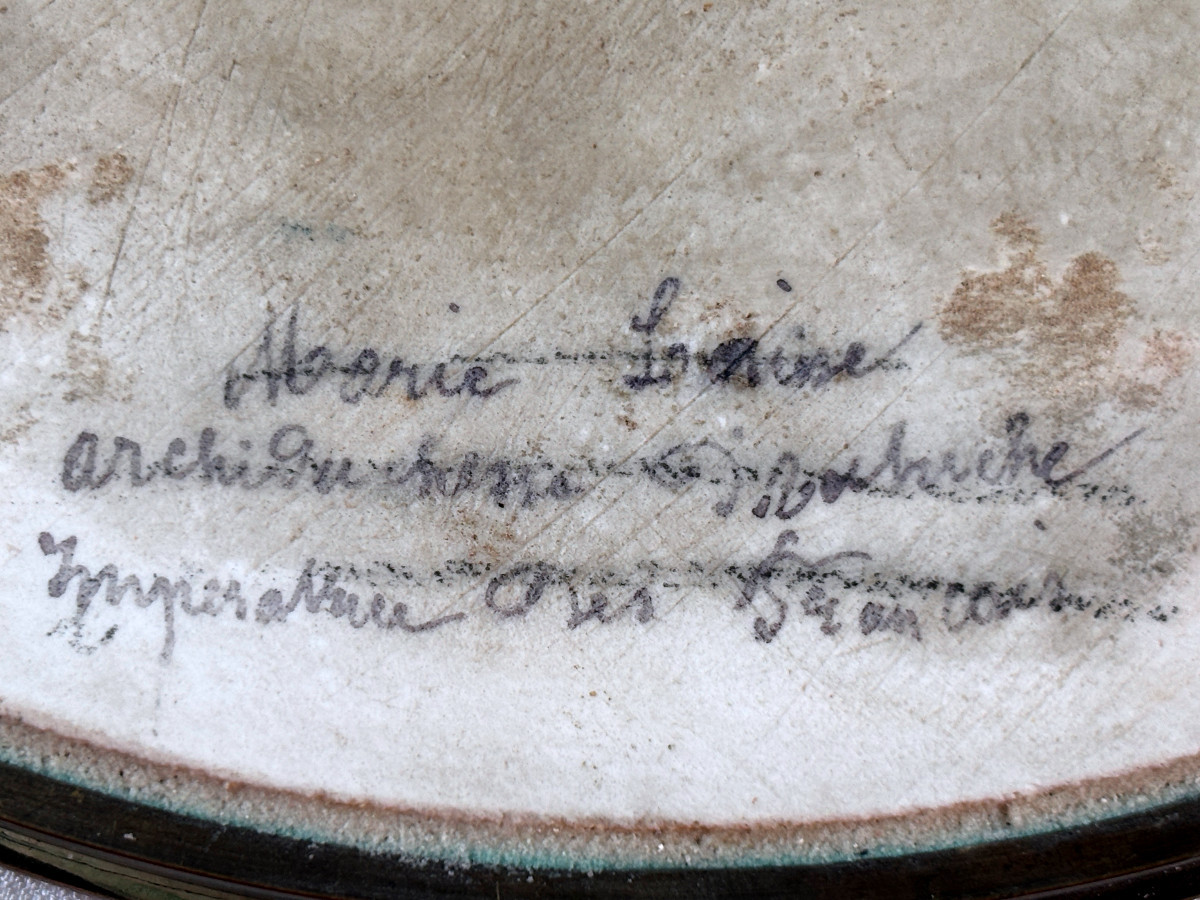 Marie Louise
archiduchesse d'Autriche
Imperatrice des Francais